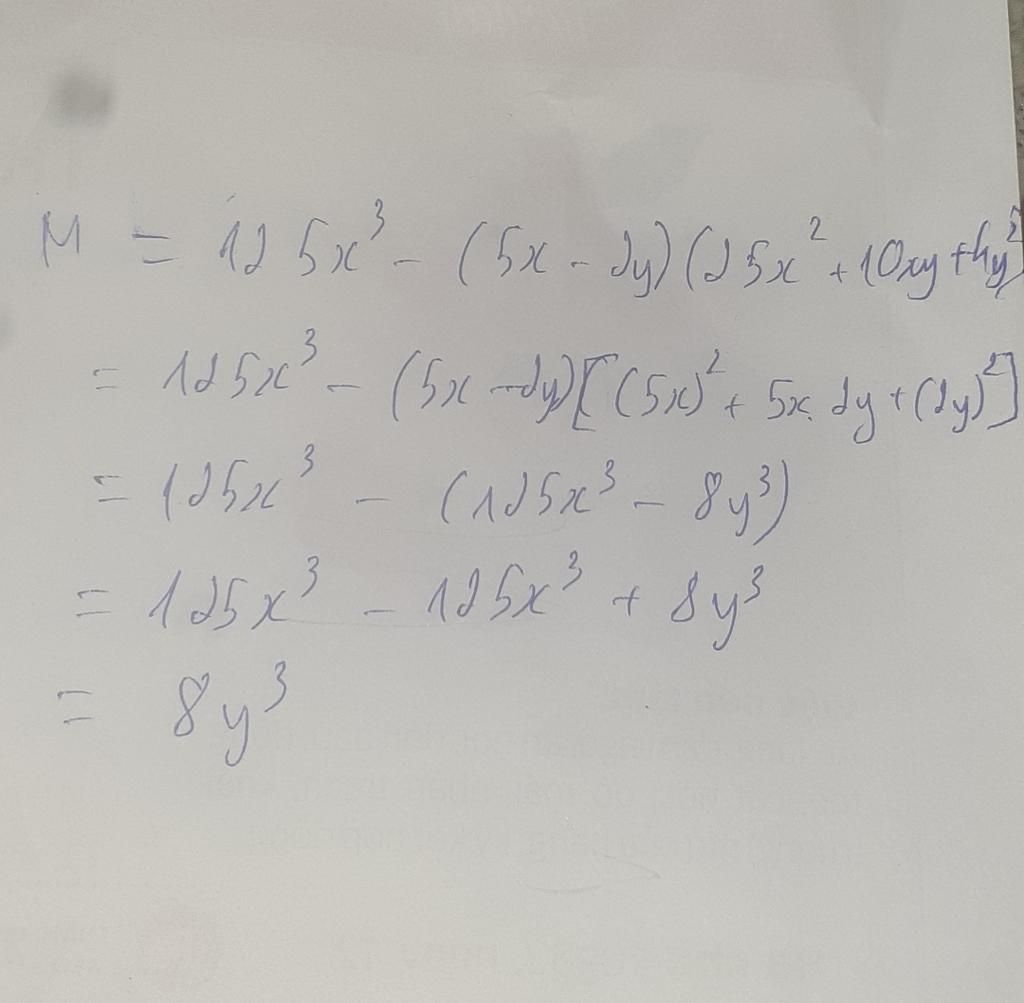 M = 125x³ - (5x - 2y)(25x² + 10xy + 4y²)
= 125x³ - (5x - 2y)[(5x)² + 5x.2y + (2y)²]
= 125x³ - (125x³ - 8y³)
= 125x³ - 125x³ + 8y³
= 8y³